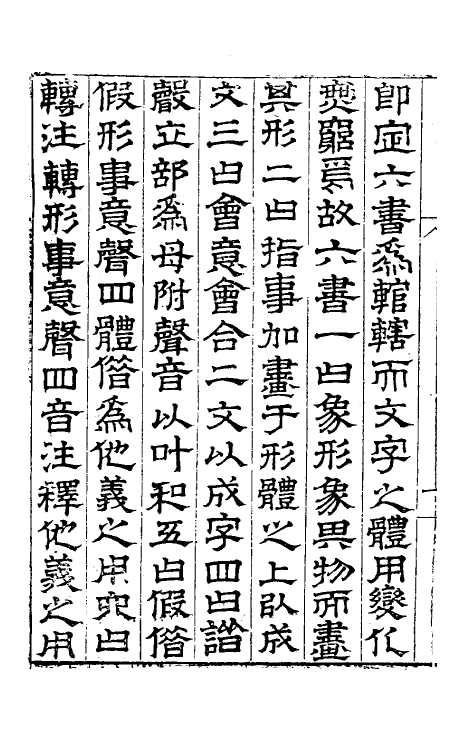 即定六書爲輨轄而文字之體用變化
煲窮焉故六書一曰象形象畀物而畫
其形二曰指事加畫于形體之上以成
文三曰會意會合二文以成字四曰諧
聲立部爲母附聲音以叶和五曰假借
假形事意聲四體借爲他義之用六曰
轉注轉形事意聲四音注釋他義之用